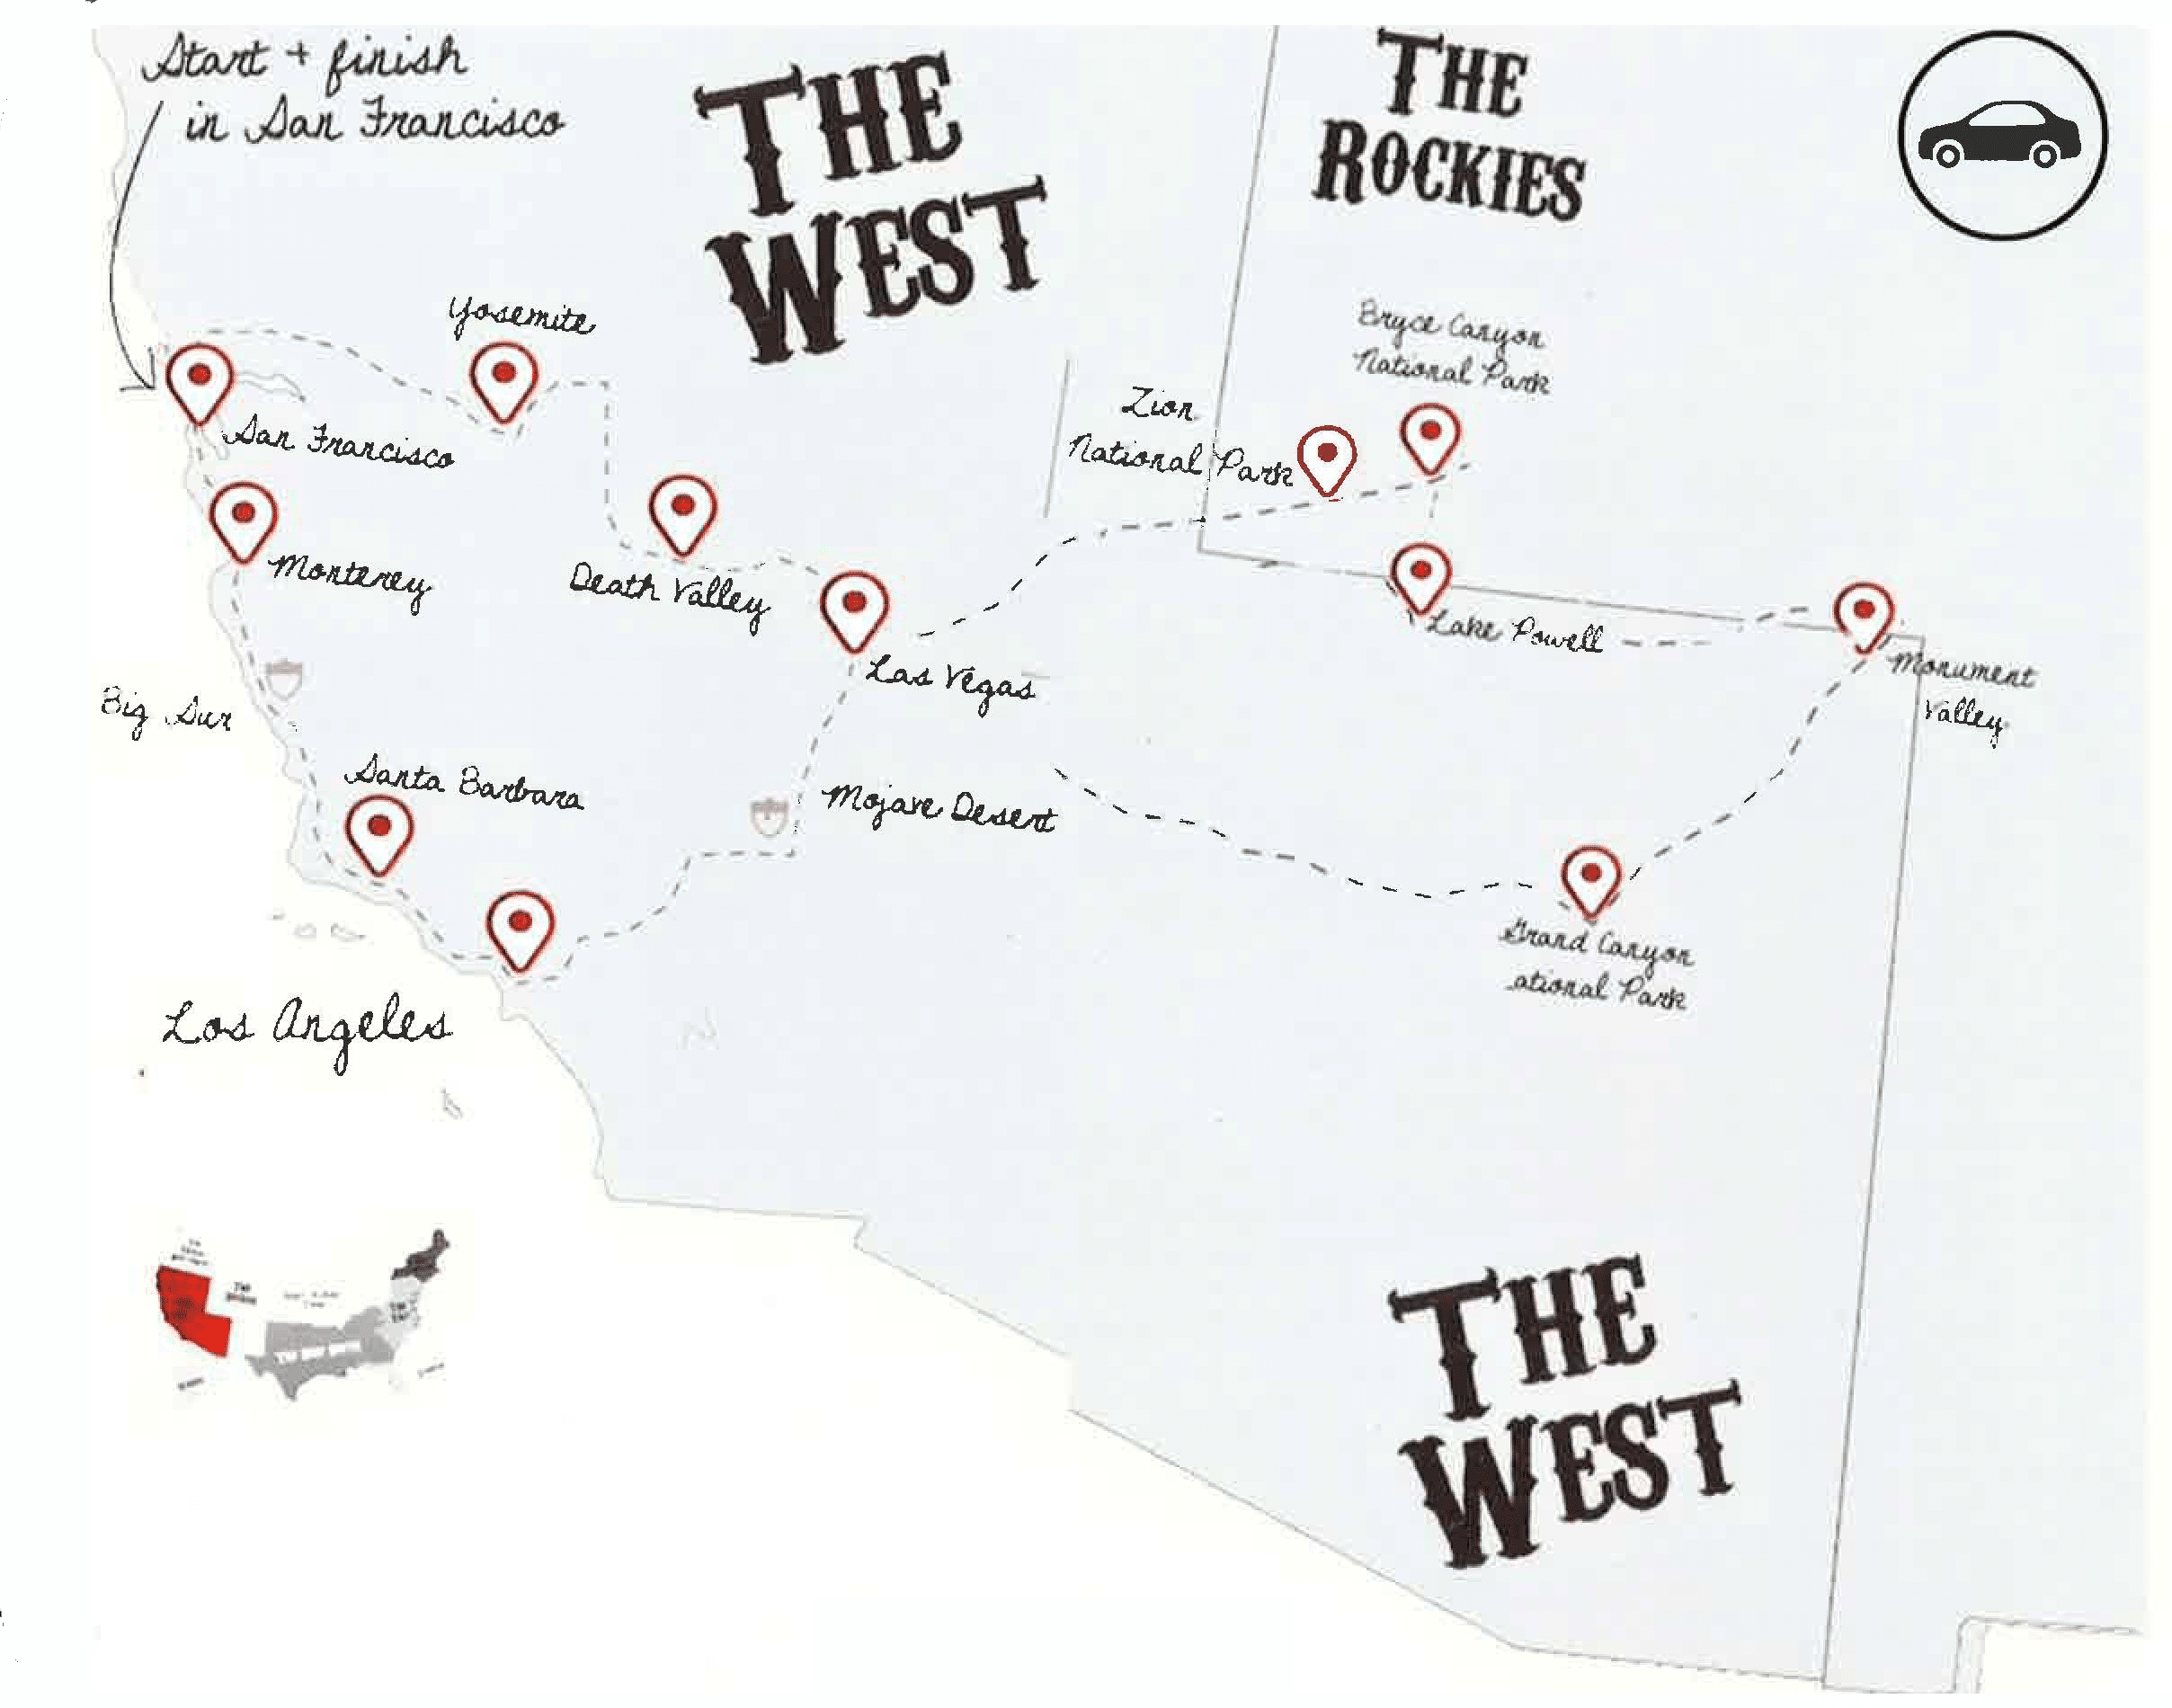 Start + finish
in San Francisco
THE
WEST
THE
ROCKIES
Yosemite
Bryce Canyon
National Park
Zion
National Park
San Francisco
Monterey
Death Valley
Las Vegas
Lake Powell
Monument
Valley
Big Sur
Santa Barbara
Mojave Desert
Grand Canyon
ational Park
Los Angeles
THE
WEST